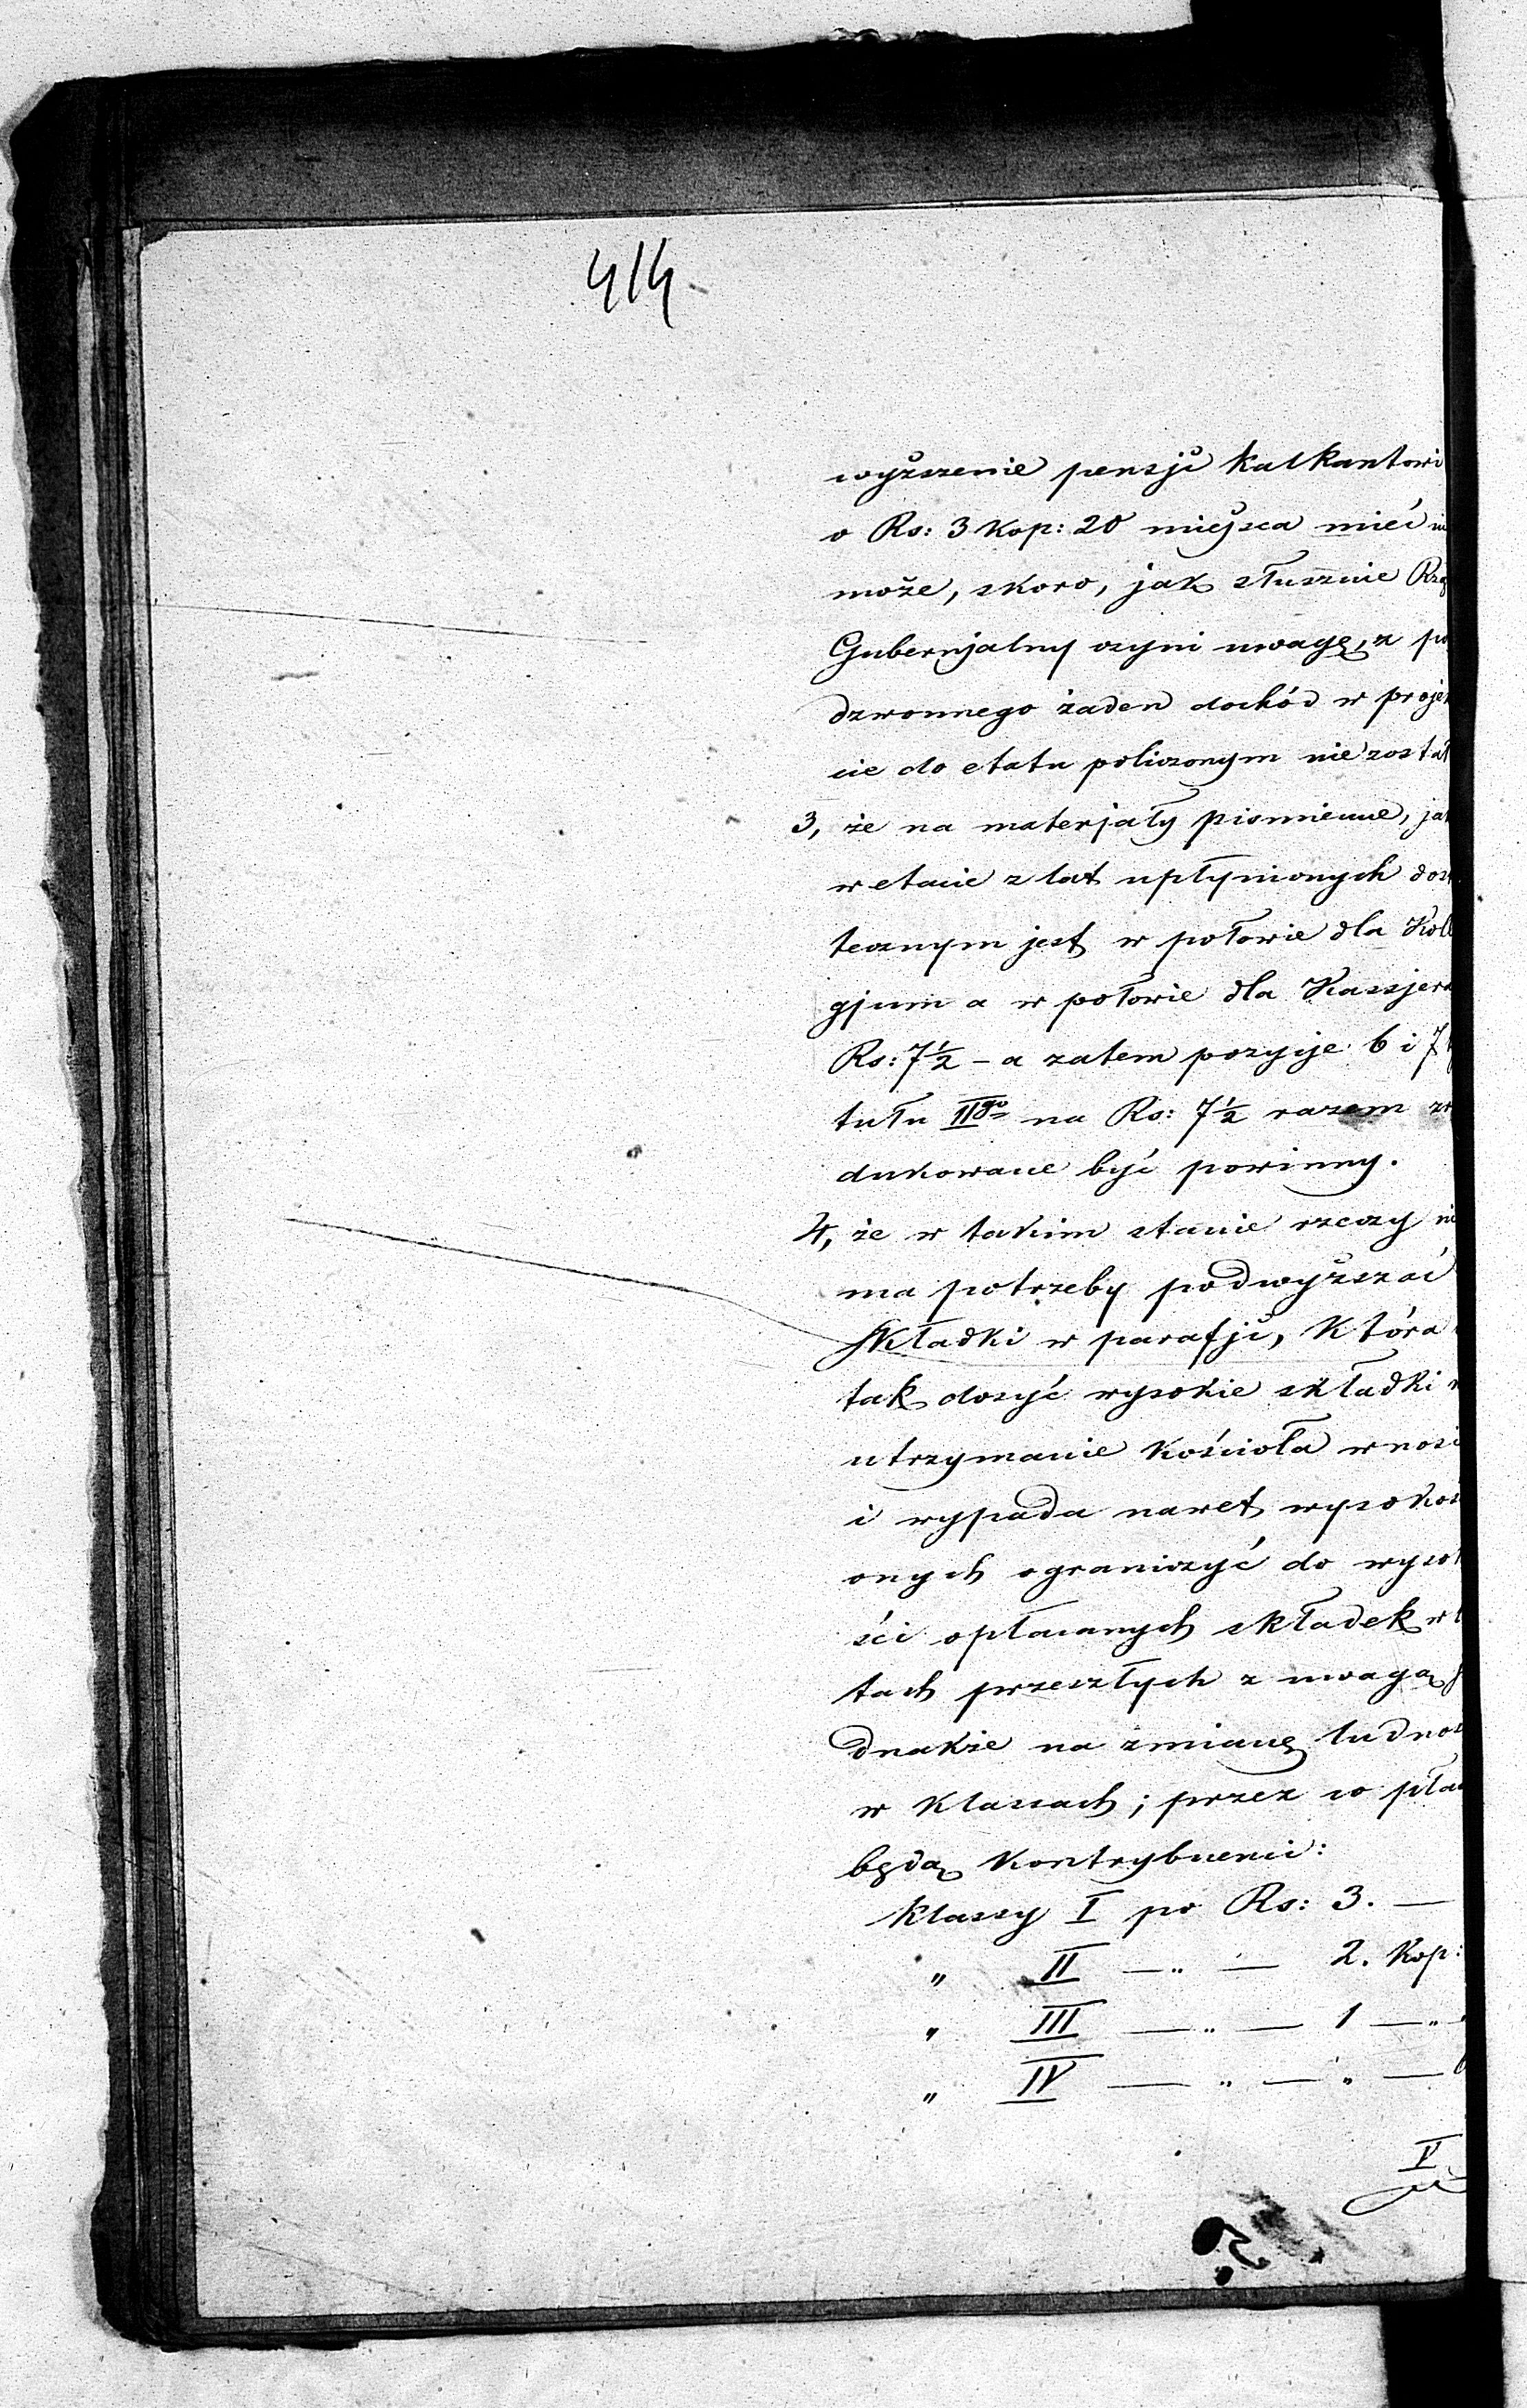 414
wyższenie pensji kalkantowi
o Rs: 3 kop: 20 miejsca mieć
może, skoro, jak słusznie Rzą
Gubernjalny czyni uwagę, z po
dzwonnego żaden dochód w projek
cie do etatu policzonym nie został
3, że na materjały pismienne, jak
w etacie z lat upłynionych dost
tecznym jest w połowie dla Kolle
gjum a w połowie dla Kassjera
Rs: 7½ – a zatem pozycje 6 i 7
tułu IIgo na Rs: 7½ razem zre
dukowane być powinny.
4, że w takim stanie rzeczy nie
ma potrzeby podwyższać
składki w parafji, która
tak dosyć wysokie składki
utrzymanie kościoła wnosi
i wypada nawet wysokoś
onych ograniczyć do wysok
ści opłacanych składek w l
tach przeszłych z uwagą
dnakże na zmianę ludnoś
w klassach; przez co płac
będą kontrybuenci:
klassy I po Rs: 3. —
„ II — „ — 2. kop:
„ III — „ — 1 — „
„ IV — „ — „ —
V